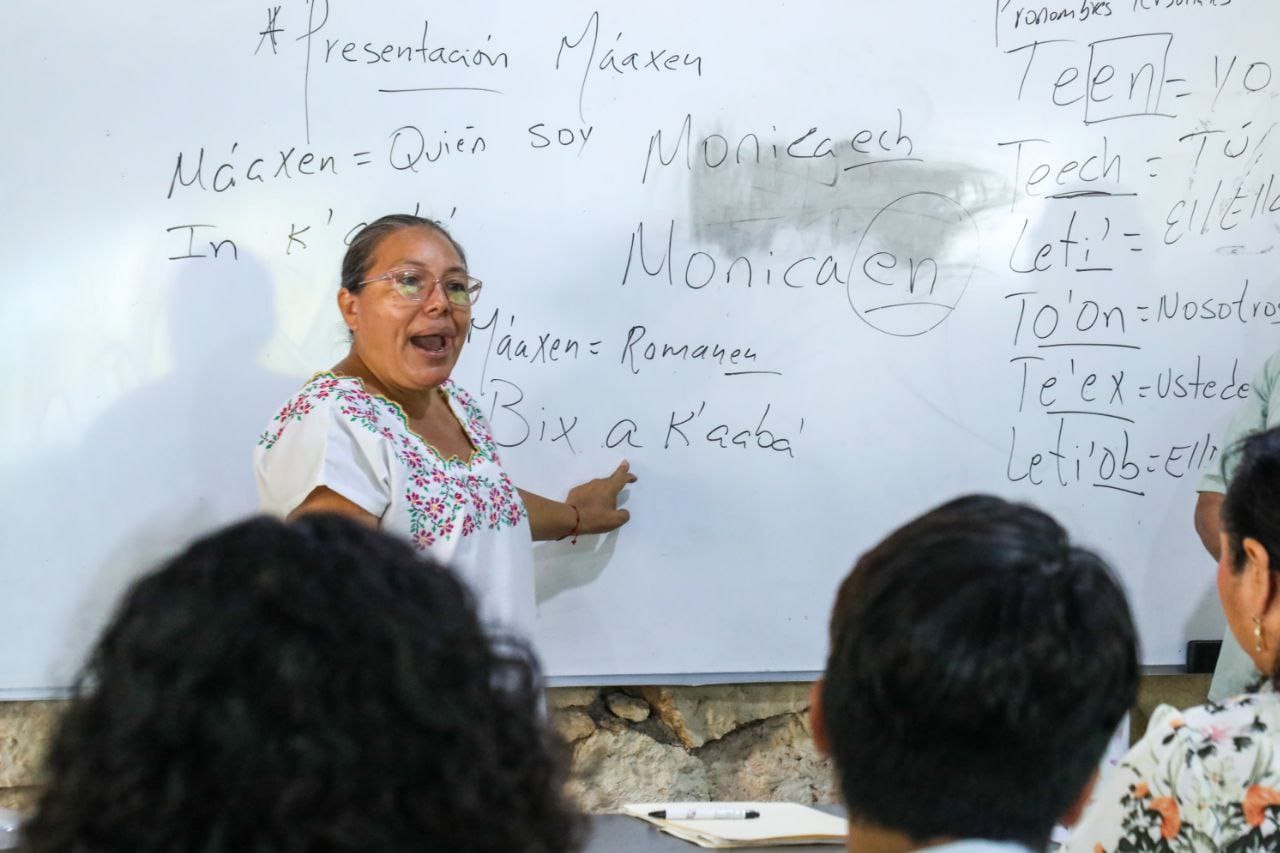 * Presentación Máaxen
Máaxen = Quién soy
In
Monicaech
Monicaen
Máaxen = Romanen
Bix a K'aaba'
Pronombres
Teen = Yo
Teech = Tú/
Leti' = Ell/Ella
To'on = Nosotros
Te'ex = Ustede
Leti'ob = Ell